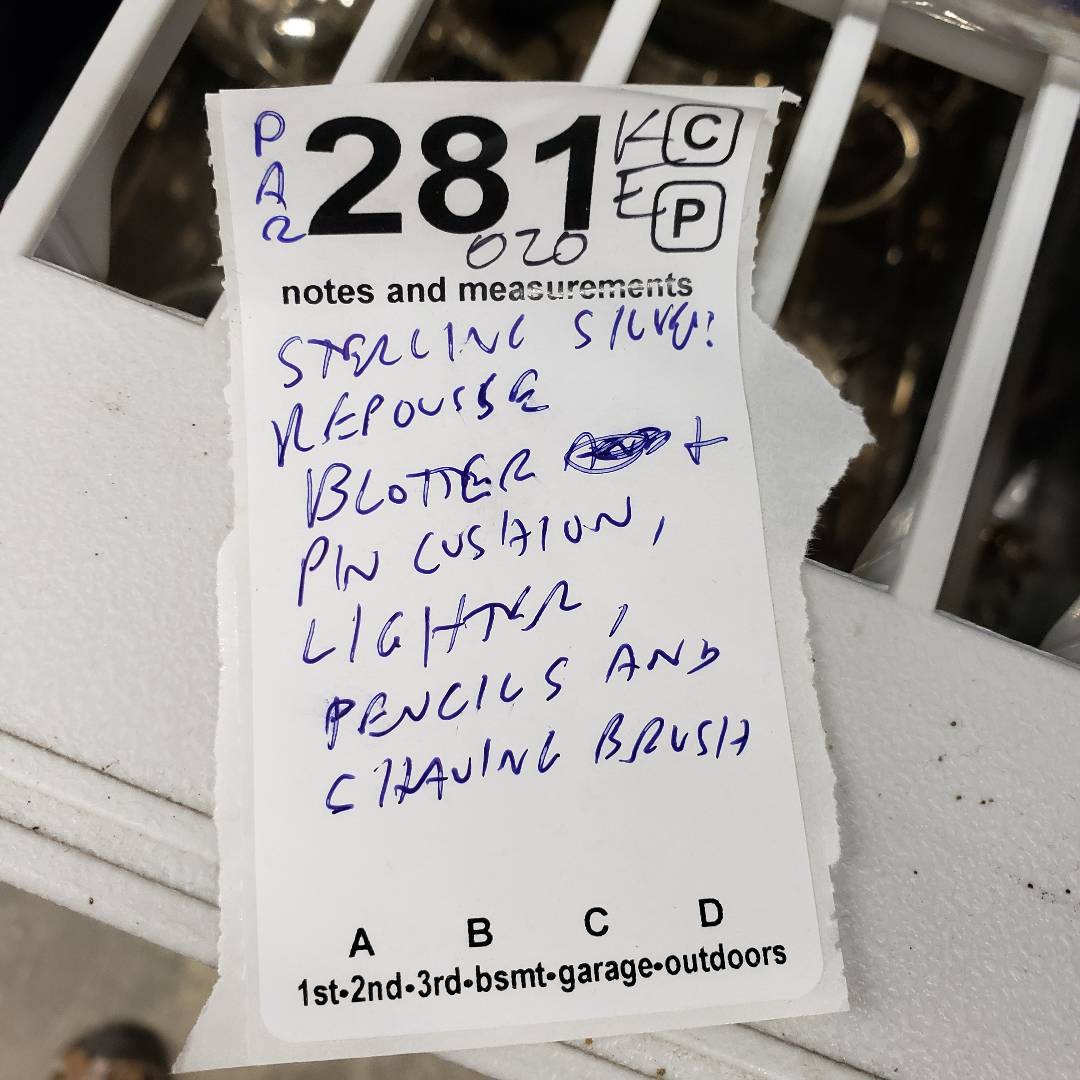 PAR 281 K C
E P
020
notes and measurements
STERLING SILVER
REPOUSSE
BLOTTER +
PIN CUSHION,
LIGHTER,
PENCILS AND
SHAVING BRUSH
A B C D
1st•2nd•3rd•bsmt•garage•outdoors